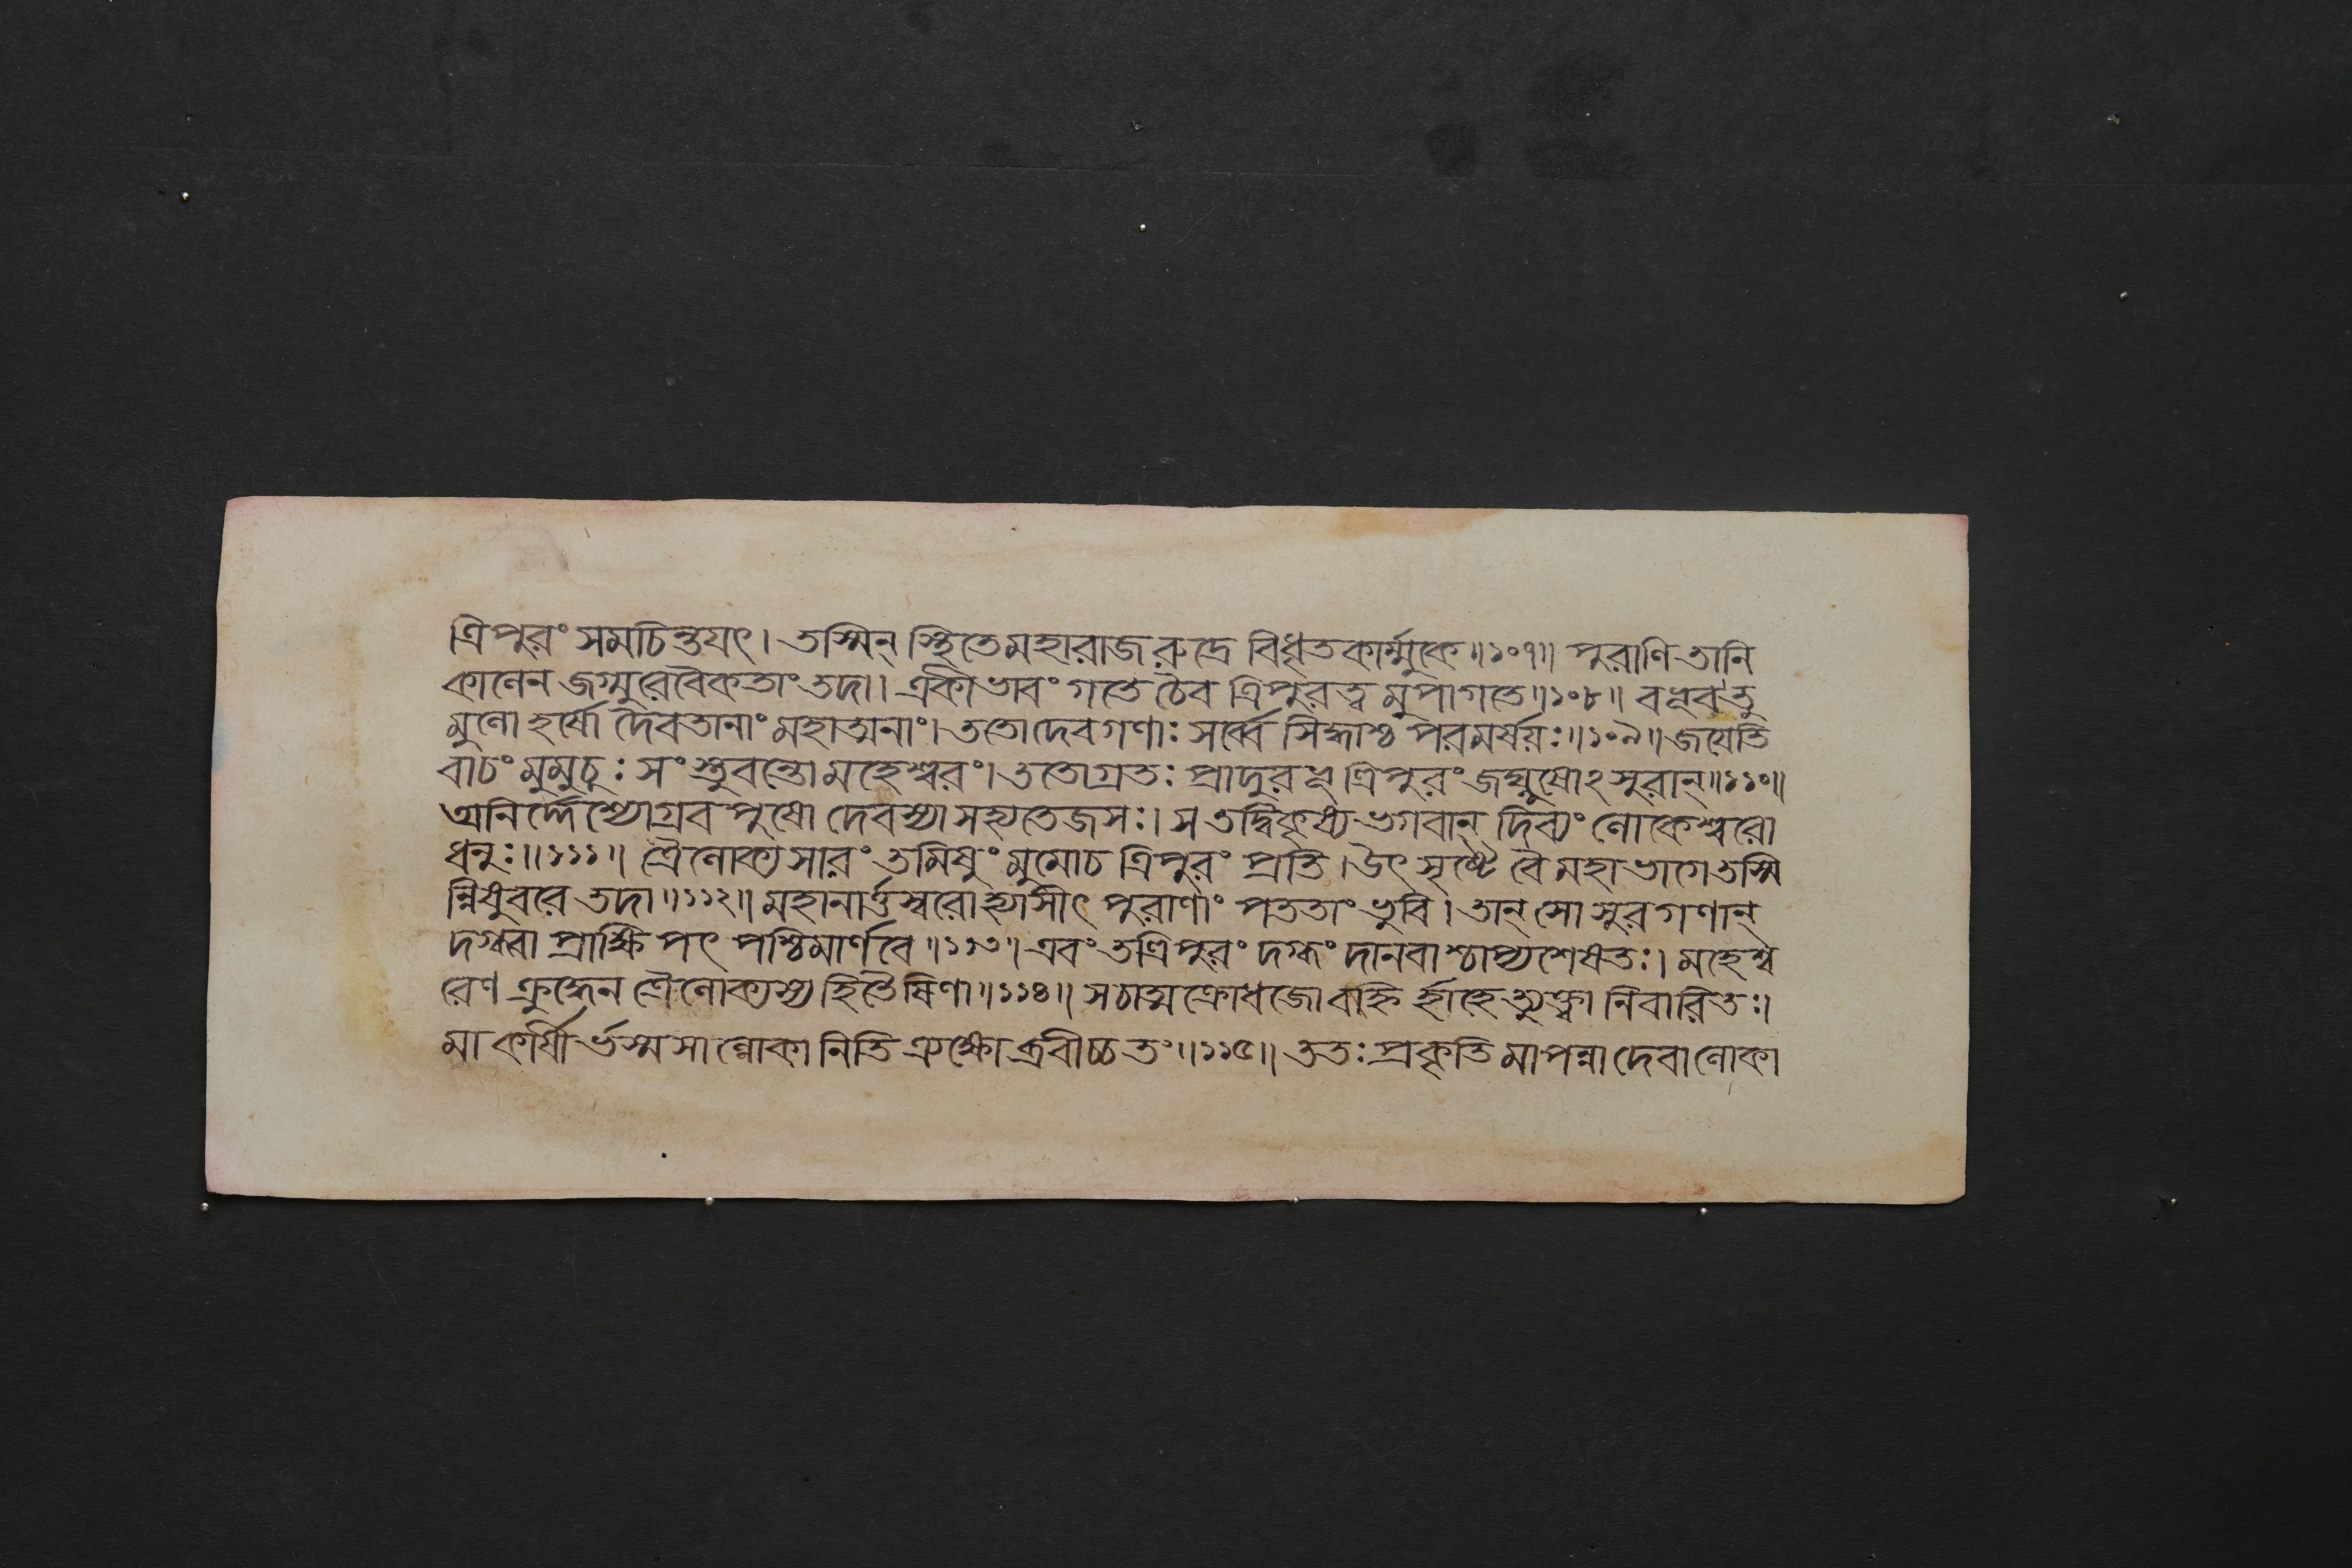 ত্রিপুরং সমচিন্তয়ৎ। তস্মিন্ স্থিতে মহারাজ রুদ্রে বিধৃতকার্ম্মুকে॥১০৭॥ পুরাণি তানি
কালেন জগ্মুরেবৈকতাং তদা। একীভাবং গতে চৈব ত্রিপুরত্ব মুপাগতে॥১০৮॥ বভূব তু
মুলো হর্ষো দৈবতানাং মহাত্মনাং। ততো দেবগণাঃ সর্ব্বে সিদ্ধাশ্চ পরমর্ষয়ঃ॥১০৯॥ জয়েতি
বাচং মুমুচুঃ সংস্তুবন্তো মহেশ্বরং। ততোগ্রতঃ প্রাদুরভূ ত্রিপুরং জঘ্নুষোঽসুরান্॥১১০॥
অনির্দ্দেশ্যোগ্রবপুষো দেবস্যাসহ্যতেজসঃ। স তদ্বিকৃষ্য ভগবান্ দিব্যং লোকেশ্বরো
ধনুঃ॥১১১॥ ত্রৈলোক্যসারং তমিষুং মুমোচ ত্রিপুরং প্রতি। উৎসৃষ্টে বৈ মহাভাগে তস্মি
ন্নিষুবরে তদা॥১১২॥ মহানার্ত্তস্বরো হ্যাসীৎ পুরাণাং পততাং ভুবি। তান্ সো সুরগণান্
দগ্ধ্বা প্রাক্ষিপৎ পশ্চিমার্ণবে॥১১৩॥ এবং তত্রিপুরং দগ্ধং দানবাশ্চাপ্যশেষতঃ। মহেশ্ব
রেণ ক্রুদ্ধেন ত্রৈলোক্যস্য হিতৈষিণা॥১১৪॥ স চাত্মক্রোধজো বহ্নি র্হাহেত্যুক্ত্বা নিবারিতঃ।
মা কার্ষী র্ভস্মসাল্লোকা নিতি ত্র্যক্ষোব্রবীচ্চ তং॥১১৫॥ ততঃ প্রকৃতি মাপন্না দেবা লোকা